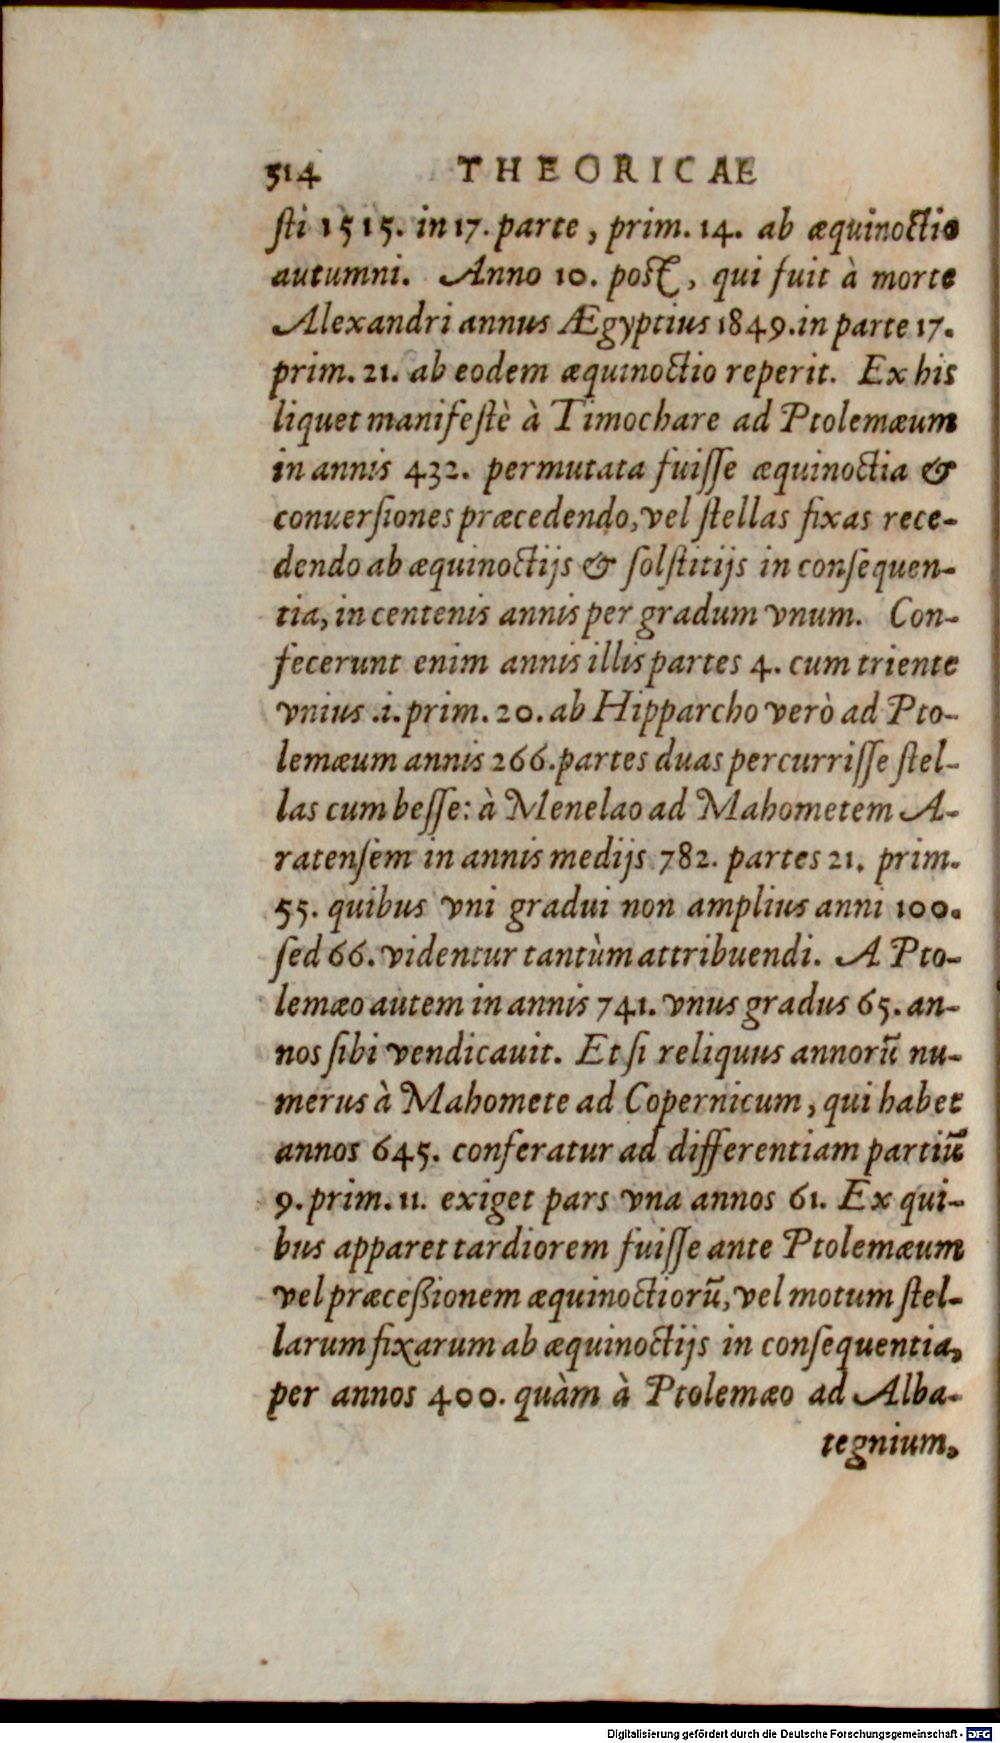 514 THEORICAE
ſti 1515. in 17. parte, prim. 14. ab æquinoctio
autumni. Anno 10. post, qui fuit à morte
Alexandri annus Ægyptius 1849. in parte 17.
prim. 21. ab eodem æquinoctio reperit. Ex his
liquet manifeſtè à Timochare ad Ptolemæum
in annis 432. permutata fuiſſe æquinoctia &
conuerſiones præcedendo, vel ſtellas fixas rece-
dendo ab æquinoctijs & ſolſtitijs in conſequen-
tia, in centenis annis per gradum vnum. Con-
fecerunt enim annis illis partes 4. cum triente
vnius .i. prim. 20. ab Hipparcho verò ad Pto-
lemæum annis 266. partes duas percurriſſe ſtel-
las cum beſſe: à Menelao ad Mahometem A-
ratenſem in annis medijs 782. partes 21. prim.
55. quibus vni gradui non amplius anni 100.
ſed 66. videntur tantùm attribuendi. A Pto-
lemæo autem in annis 741. vnus gradus 65. an-
nos ſibi vendicauit. Et ſi reliquus annorũ nu-
merus à Mahomete ad Copernicum, qui habet
annos 645. conferatur ad differentiam partiũ
9. prim. 11. exiget pars vna annos 61. Ex qui-
bus apparet tardiorem fuiſſe ante Ptolemæum
vel præceßionem æquinoctiorũ, vel motum ſtel-
larum fixarum ab æquinoctijs in conſequentia,
per annos 400. quàm à Ptolemæo ad Alba-
tegnium,
Digitalisierung gefördert durch die Deutsche Forschungsgemeinschaft - DFG